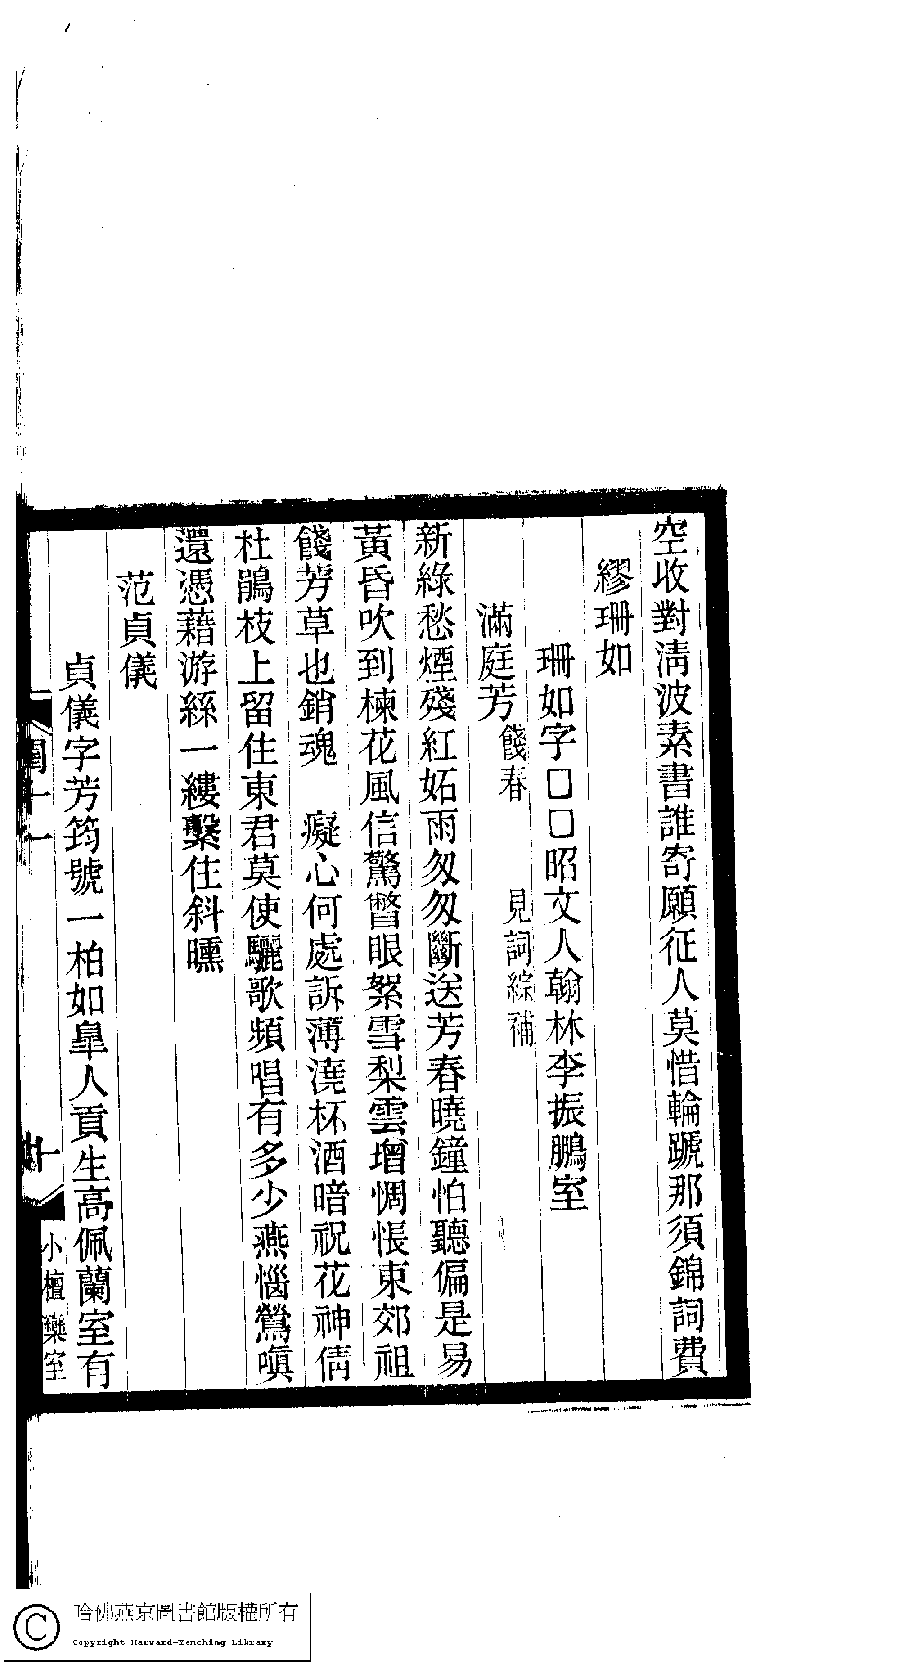 空收對淸波素書誰寄願征人莫惜輪蹏那須錦詞費
繆珊如
珊如字□□昭文人翰林李振鵬室
滿庭芳 餞春 見詞綜補
新綠愁煙殘紅妬雨匆匆斷送芳春曉鐘怕聽偏是易
黃昏吹到楝花風信驚瞥眼絮雪梨雲增惆悵東郊祖
餞芳草也銷魂 癡心何處訴薄澆杯酒暗祝花神倩
杜鵑枝上留住東君莫使驪歌頻唱有多少燕惱鶯嗔
還憑藉游絲一縷繫住斜曛
范貞儀
貞儀字芳筠號一柏如臯人貢生高佩蘭室有
十一
小檀欒室
哈佛燕京圖書館版權所有
Copyright Harvard-Yenching Library